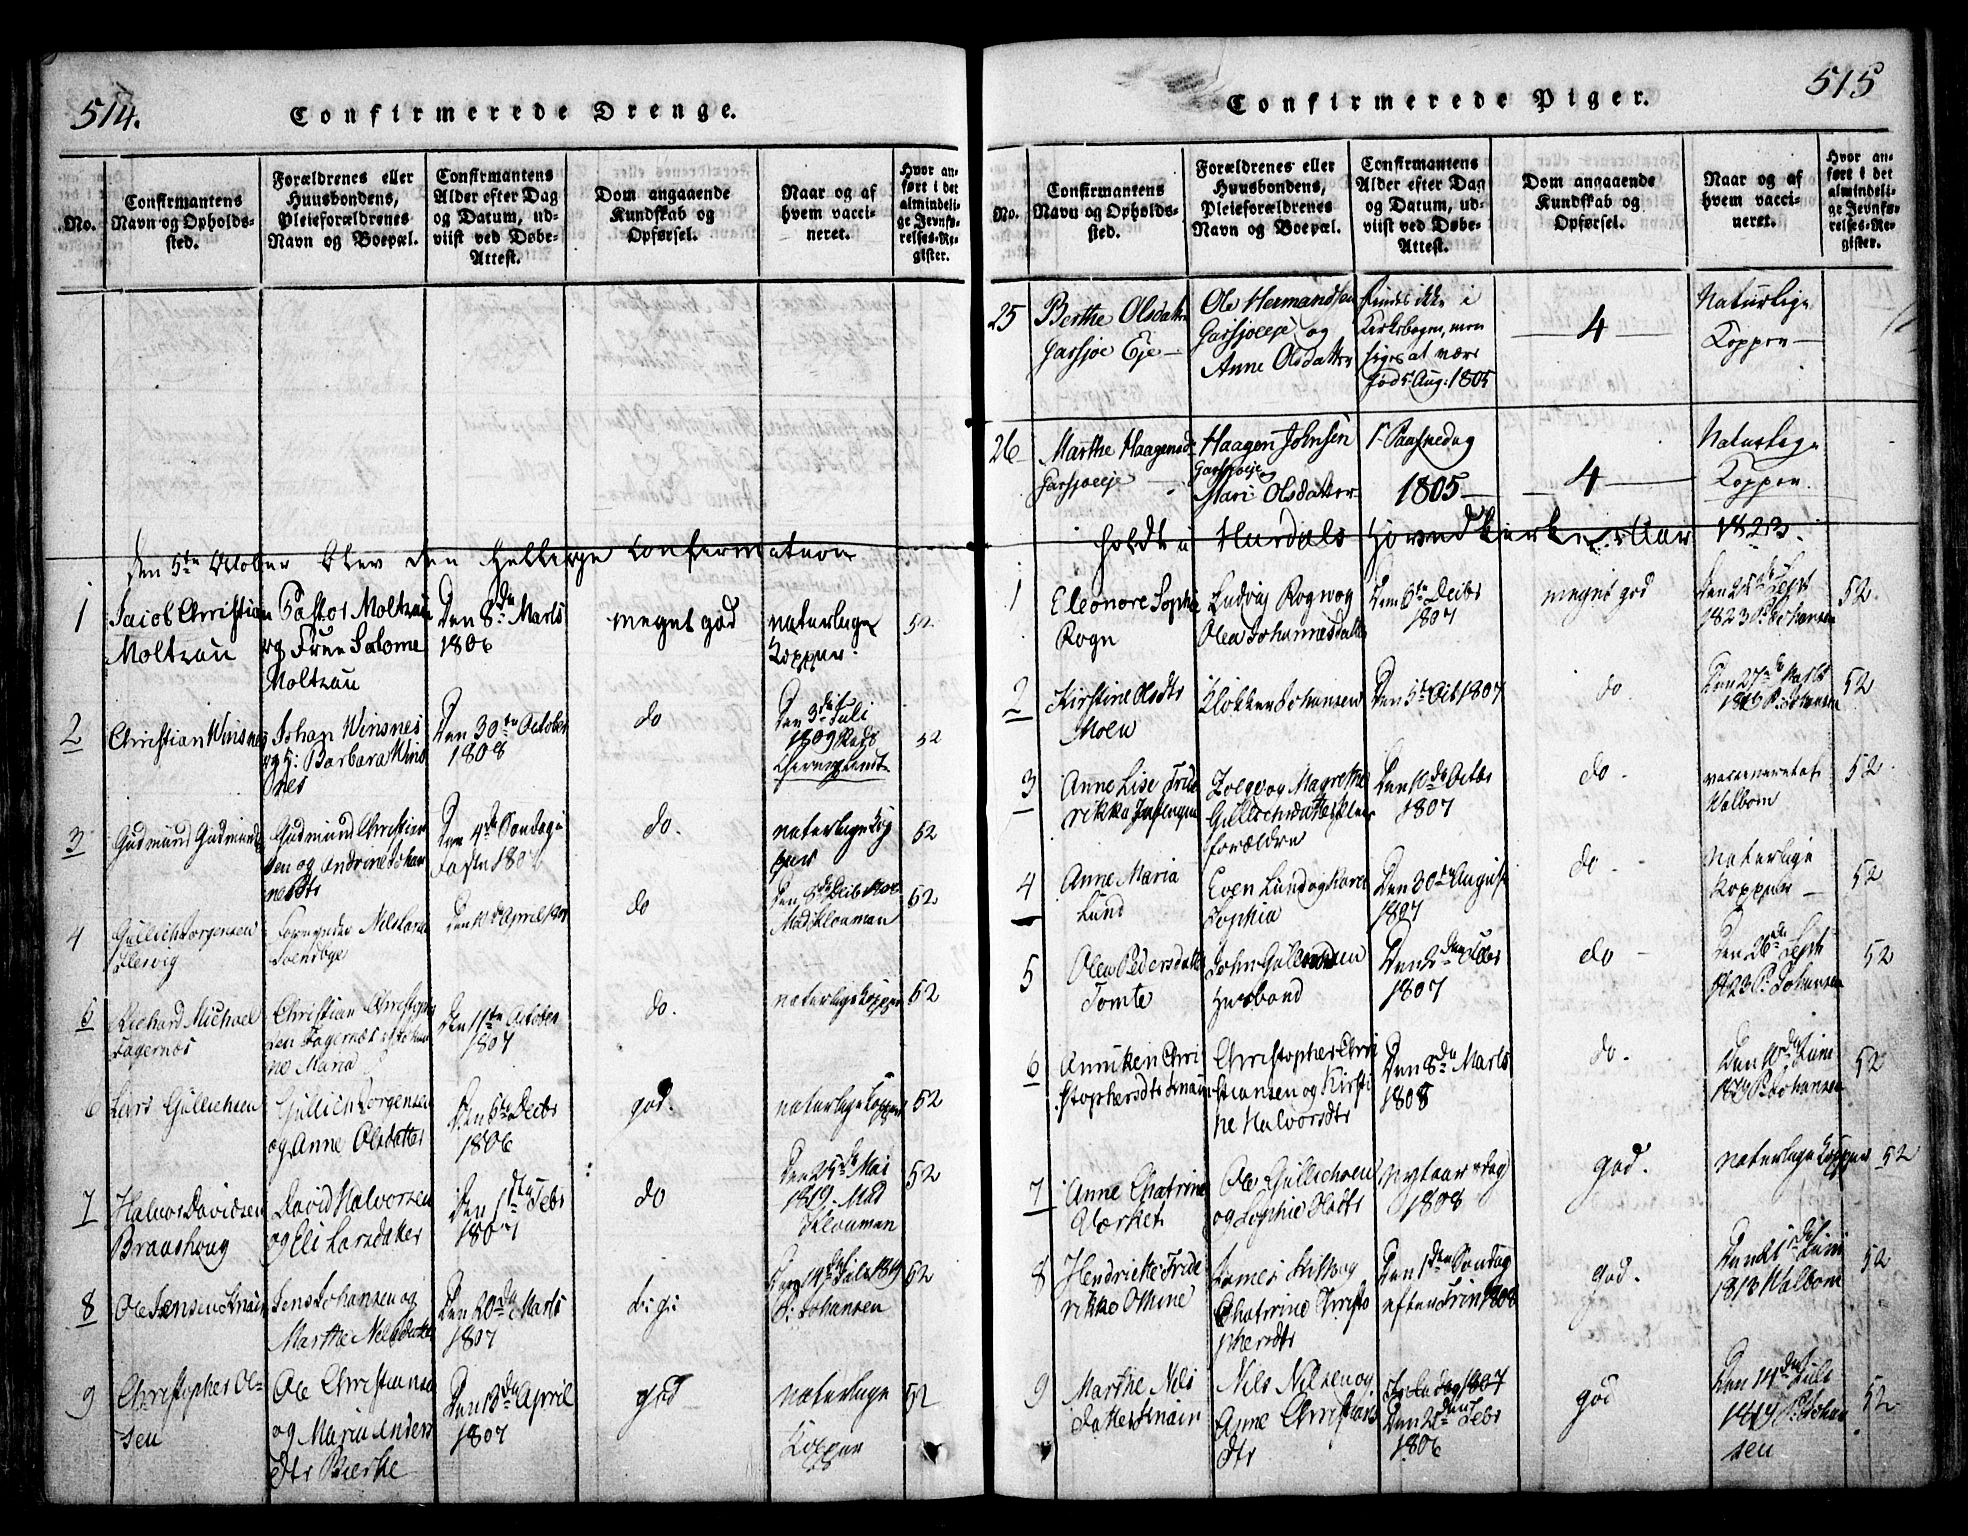 514.
Confirmerede Drenge.
No.
Confirmantens
Navn og Opholds-
sted.
Forældrenes eller
Huusbondens,
Pleieforældrenes
Navn og Boepæl.
Confirmantens
Alder efter Dag
og Datum, ud-
viist ved Døbe-
Attest.
Dom angaaende
Kundskab og
Opførsel.
Naar og af
hvem vacci-
neret.
Hvor an-
ført i det
almindeli-
ge Jevnfø-
relses-Re-
gister.
den 5te October blev den hellige Confermation
1
Jacob Christian
Moltzau
Pastor Moltzau
og Frue Salome
Moltzau
Den 8de Marts
1806
meget god
naturlige
Kopper.
52
2
Christian Winsnes
Johan Winsnes
og Barbara Wins
nes
Den 30te October
1808
do
Den 3de Juli
1809
52
3
Gudmund Gudmunds
Gudmund Christian
sen og Andrine Johan
nesdtr
Den 4de Søndag i
Fasten 1807
do.
naturlige Kop
per
52
4
Gullich Jorgensen
Nils Lars
Den April
do
Mad Kloumann
52
5
Richard Michael
Fagernæs
Christian Christophe
sen Fagernæs og Johan
ne Maria
Den 11te October
1807
do.
naturlige Kopper
52
6
Lars Gullichsen
Gullich Jorgensen
og Anne Olsdatter
Den 6te Decbr
1806
god.
naturlige Kopper
52
7
Halvor Davidsen
Braashoug
David Halvorsen
og Eli Larsdatter
Den 1ste Febr
1807
do
Den 25de Mai
1819 Mad
Kloumann
52
8
Ole Jensen Knain
Jens Johansen og
Marthe Nilsdatter
Den 20de Marts
1807
Den 19de Juli 1819
P. Johansen
52
9
Christopher Ol-
sen
Ole Christiansen
og Maria Anders
dtr Bierke
Den 13de April
1807
god
naturlige
Kopper
52
515
Confirmerede Piger.
No.
Confirmantens
Navn og Opholds-
sted.
Forældrenes eller
Huusbondens,
Pleieforældrenes
Navn og Boepæl.
Confirmantens
Alder efter Dag
og Datum, ud-
viist ved Døbe-
Attest.
Dom angaaende
Kundskab og
Opførsel.
Naar og af
hvem vacci-
neret.
Hvor an-
ført i det
almindeli-
ge Jevnfø-
relses-Re-
gister.
25
Berthe Olsdatter
Garsjøe Eje
Ole Hermandsen
Garsjøeeje og
Anne Olsdatter
findes ikke i
Kirkebogen, men
siges at være
fød 5 Aug: 1805
4
Naturlige
Kopper
26
Marthe Haagensd
Garsjøeeje
Haagen Johnsen
Garsjøeeje
Mari Olsdatter
1 Paaskedag
1805
4
Naturlige
Kopper.
holdt i Hurdals Hovedkirke Aar 1823.
1
Eleonore Sophie
Rogn
Ludvig Rogn og
Olea Johannesdatter
Den 6te Decbr
1807
meget god
Den 25de Sept
1823 P. Johansen
52
2
Kirstine Olsdtr
Moen
Klokker Johansen
Den 5te Oct 1807
do.
Den 27de Marts
P. Johansen
52
3
Anne Lise Fride
rikke
Magrethe
forældre
Den 10de Octbr
1807
do
vaccineret af
Walbom
52
4
Anne Maria
Lund
Even Lund og Karen
Sophia
Den 30te August
1807
do
Naturlige
Kopper
52
5
Olea Pedersdatter
Tomte
John Gullichsen
Husbond
1807
do
Den 26de Sept
1823 P. Johansen
52
6
Anniken Chri
stophersdtr Knain
Christopher Chri
stiansen og Kirsti
ne Halvorsdtr
Den 8de Marts
1808
do.
Den 10de Juni
P. Johansen
52
7
Anne Chatrine
Værket
Ole Gullichsen
og Sophie Olsdtr
Nytaarsdag
1808
god.
naturlige Kopper
52
8
Hendrikke Fride
rikke
Chatrine Christo
phersdtr
Den 1den Søndag
efter Trin 1808
god.
Den 21de Juni
1813 Walbom
52
9
Marthe Nils
datter Knain
Nils Nilsen og
Anne Christians
dtr
1807
Febr
1806
god
Den 14de Juli
1819 P. Johan
sen
52